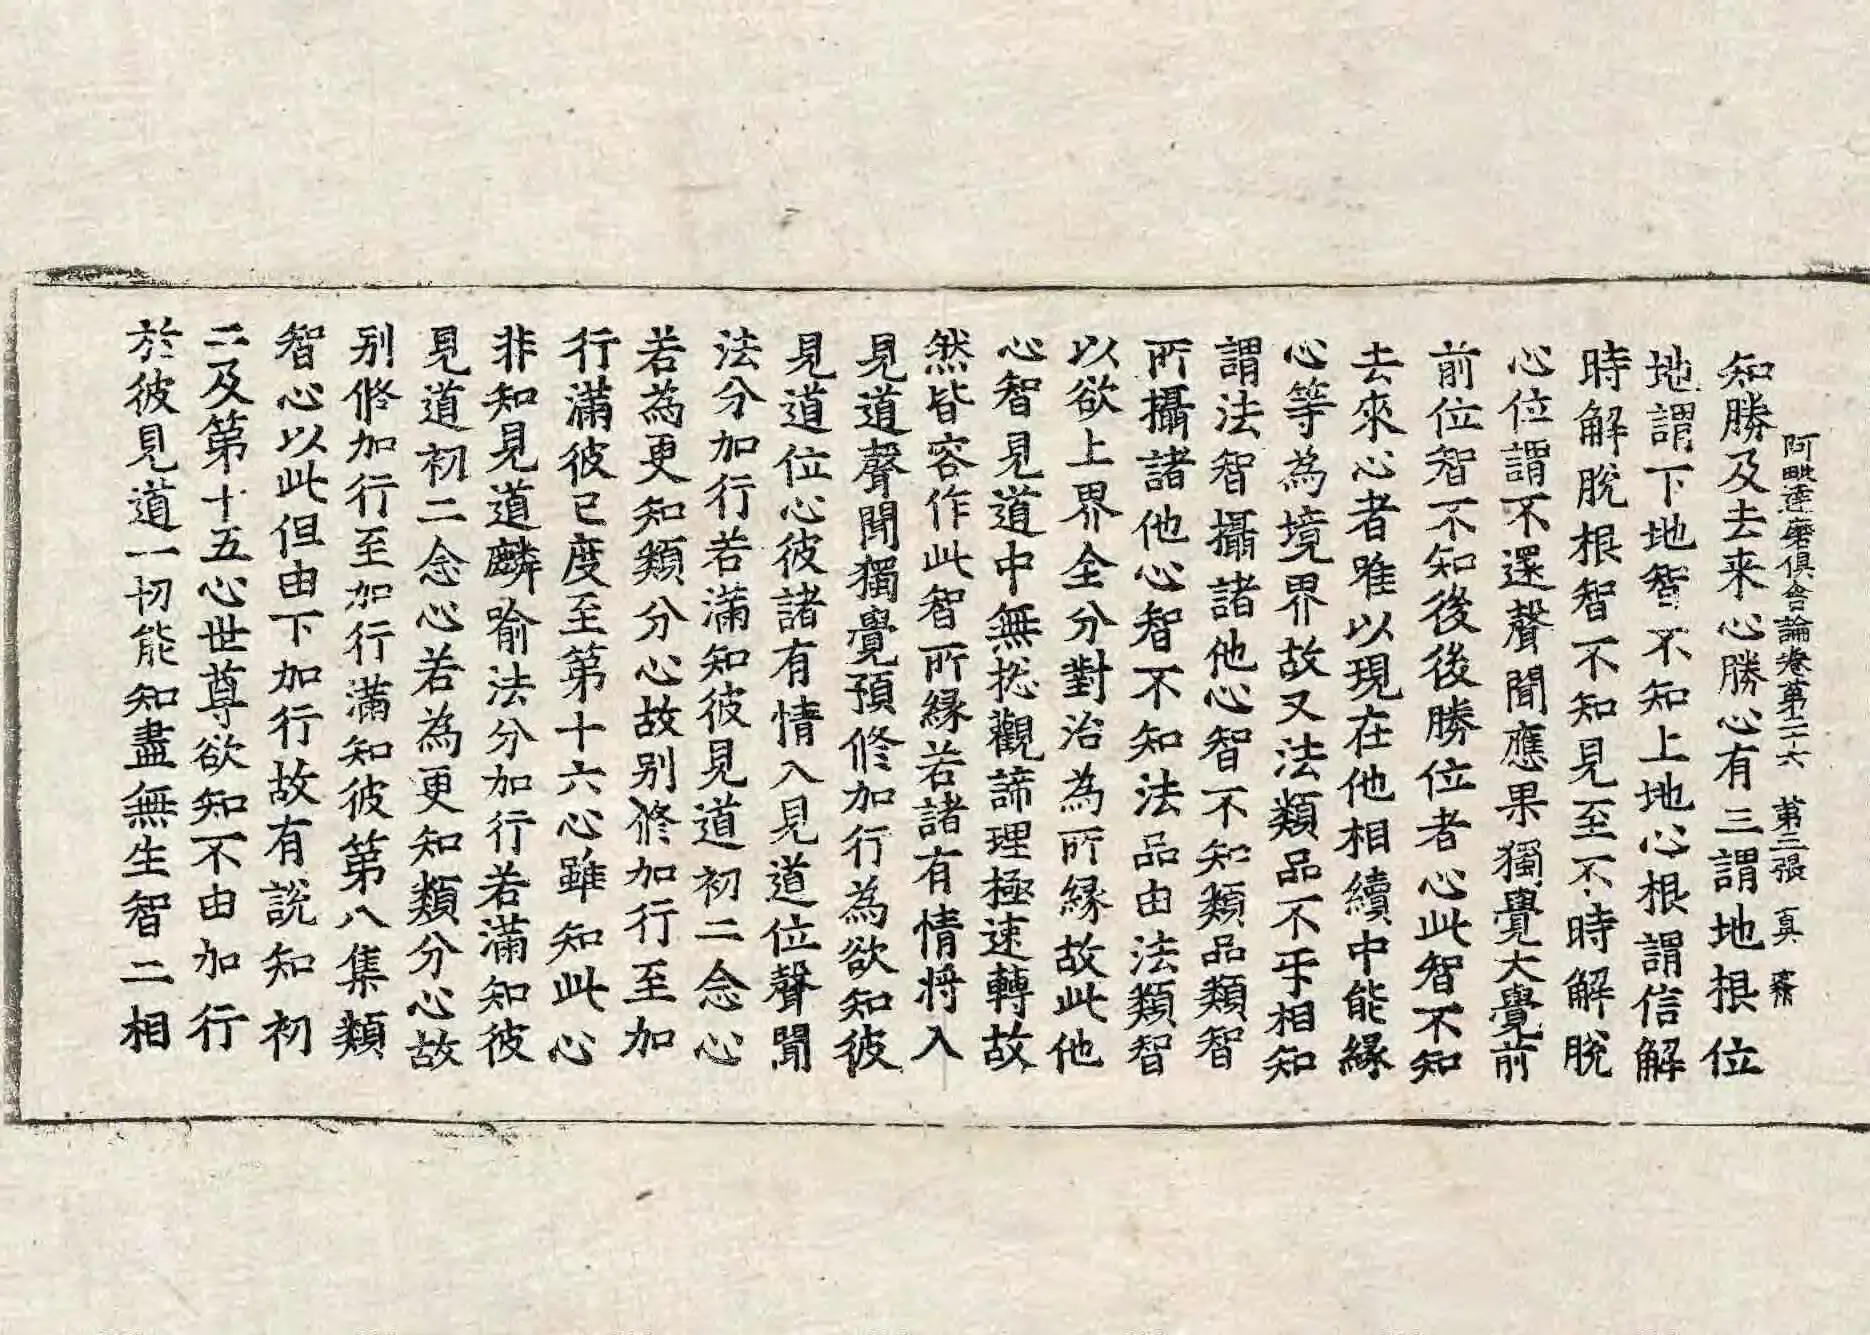 阿毗達磨俱舍論卷第二十六 第三張 真
知勝及去来心勝心有三謂地根位
地謂下地智不知上地心根謂信解
時解脫根智不知見至不時解脫
心位謂不還聲聞應果獨覺大覺前
前位智不知後後勝位者心此智不知
去來心者唯以現在他相續中能緣
心等為境界故又法類品不乎相知
謂法智攝諸他心智不知類品類智
所攝諸他心智不知法品由法類智
以欲上界全分對治為所緣故此他
心智見道中無捴觀諦理極速轉故
然皆容作此智所緣若諸有情將入
見道聲聞獨覺預修加行為欲知彼
見道位心彼諸有情入見道位聲聞
法分加行若滿知彼見道初二念心
若為更知類分心故別修加行至加
行滿彼已度至第十六心雖知此心
非知見道麟喻法分加行若滿知彼
見道初二念心若為更知類分心故
別修加行至加行滿知彼第八集類
智心以此但由下加行故有說知初
二及第十五心世尊欲知不由加行
於彼見道一切能知盡無生智二相